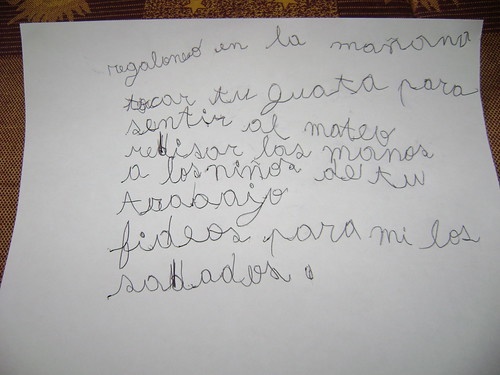 regaloneo en la mañana
tocar tu guata para
sentir al mateo
rebisar las manos
a los niños de tu
trabajo
fideos para mi los
sabados.